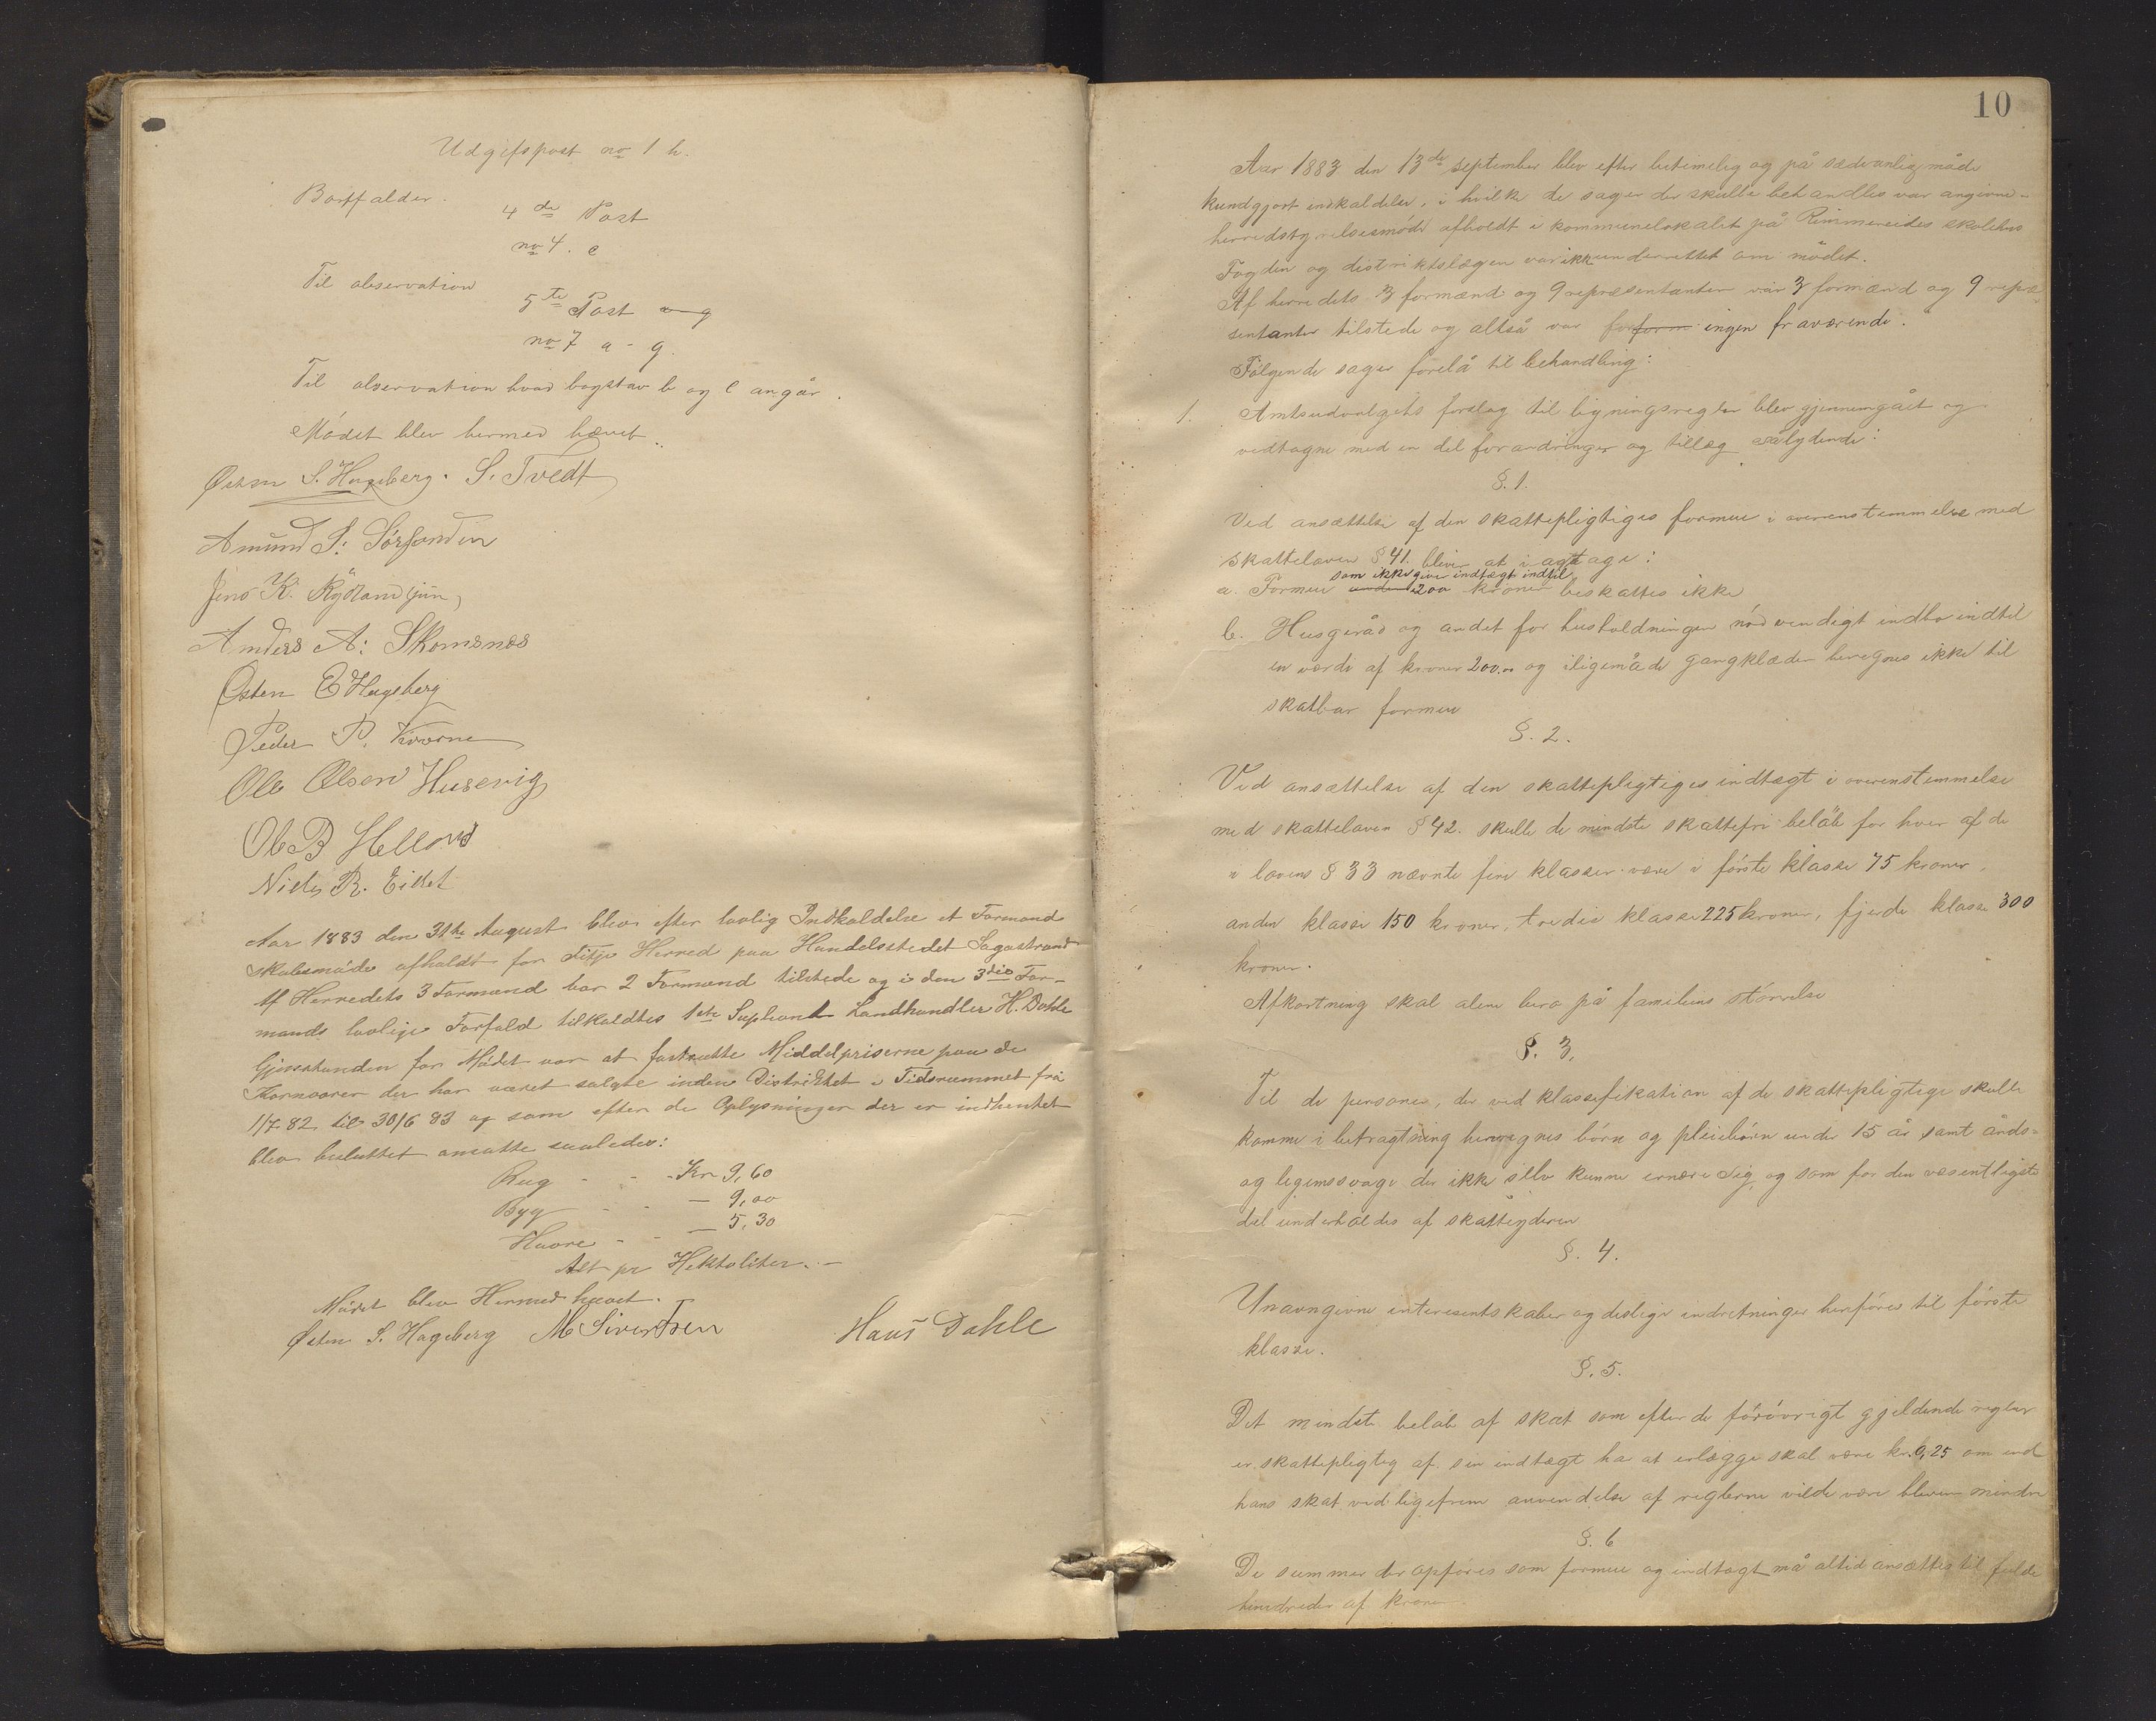 Udgifspost no 1 h.
Bortfalder.
4de Post
no 4. e
Til observation
5te Post
no 7 a - g.
Til observation hvad bogstav b og c angår.
Mödet blev hermed hævet.
Østen S. Hageberg. S. Tvedt
Amund S. Sörfonden
Jens K. Rydland jun,
Anders A: Skomsnæs
Østen E Hageberg
Peder P.
Ole Olson Husevig
Ole B Helland
Niels R. Eidet
Aar 1883 den 31te August blev efter lovlig Indkaldelse et Formand
skabsmöde afholdt for Fitje Herred paa Handelsstedet Sagastrand
Af Herredets 3 Formænd var 2 Formænd tilstede og i den 3die For-
mands lovlige Forfald tilkaldtes 1ste Supleant Landhandler H. Dahle
Gjenstanden for Mödet var at fastsætte Middelpriserne paa de
Kornvarer der har været solgte inden Distriktet i Tidsrummet fra
1/7 82 til 30/6 83 og som efter de Oplysninger der er indhentet
blev besluttet ansatte saaledes:
Rug - - Kr 9,60
Byg - - — 9,00
Havre - - — 5,30
Alt pr Hektoliter. —
Mödet blev Hermed hævet.
Østen S. Hageberg M Sivertsen Hans Dahle
10
Aar 1883 den 13de september blev efter betimelig og på sædvanlig måde
kundgjort indkaldelse, i hvilke de sager der skulle behandles var angivne -
herredstyrelsesmöde afholdt i kommunelokalet på Rimmereides skolehus
Fogden og distriktslægen var ikke underrettet om mödet.
Af herredets 3 formænd og 9 repræsentanter var 3 formænd og 9 repræ
sentanter tilstede og altså var for form ingen fraværende.
Fölgende sager forelå til behandling:
1. Amtsudvalgets forslag til ligningsregler blev gjennemgået og
vedtagne med en del forandringer og tillæg sålydende:
§. 1.
Ved ansættelse af den skattepligtiges formue i overenstemmelse med
skatteloven § 41. bliver at iagttage:
som ikke giver indtægt indtil
a. Formue under 200 kroner beskattes ikke
b. Husgeråd og andet for husholdningen nödvendigt indbo indtil
en værdi af kroner 200.00 og iligemåde gangklæder beregnes ikke til
skatbar formue
§. 2.
Ved ansættelse af den skattepligtiges indtægt i overenstemmelse
med skatteloven § 42. skulle de mindste skattefri belöb for hver af de
i lovens § 33 nævnte fire klasser være i förste klasse 75 kroner,
anden klasse 150 kroner, tredie klasse 225 kroner, fjerde klasse 300
kroner.
Afkortning skal alene bero på familiens störrelse
§. 3.
Til de personer, der ved klassifikation af de skattepligtige skulle
komme i betragtning henregnes börn og pleiebörn under 15 år samt ånds-
og legemssvage der ikke selv kunne ernære sig og som for den væsentligste
del underholdes af skatteyderen
§. 4.
Unavngivne interesentskaber og deslige indretninger henföres til förste
klasse.
§. 5.
Det mindste belöb af skat som efter de forövrigt gjeldende regler
en skattepligtig af sin indtægt ha at erlægge skal være kr. 0,25 om end
hans skat ved ligefrem anvendelse af reglerne vilde være bleven mindre
§. 6
De summer der opföres som formue og indtægt må altid ansættes til fulde
hundreder af kroner